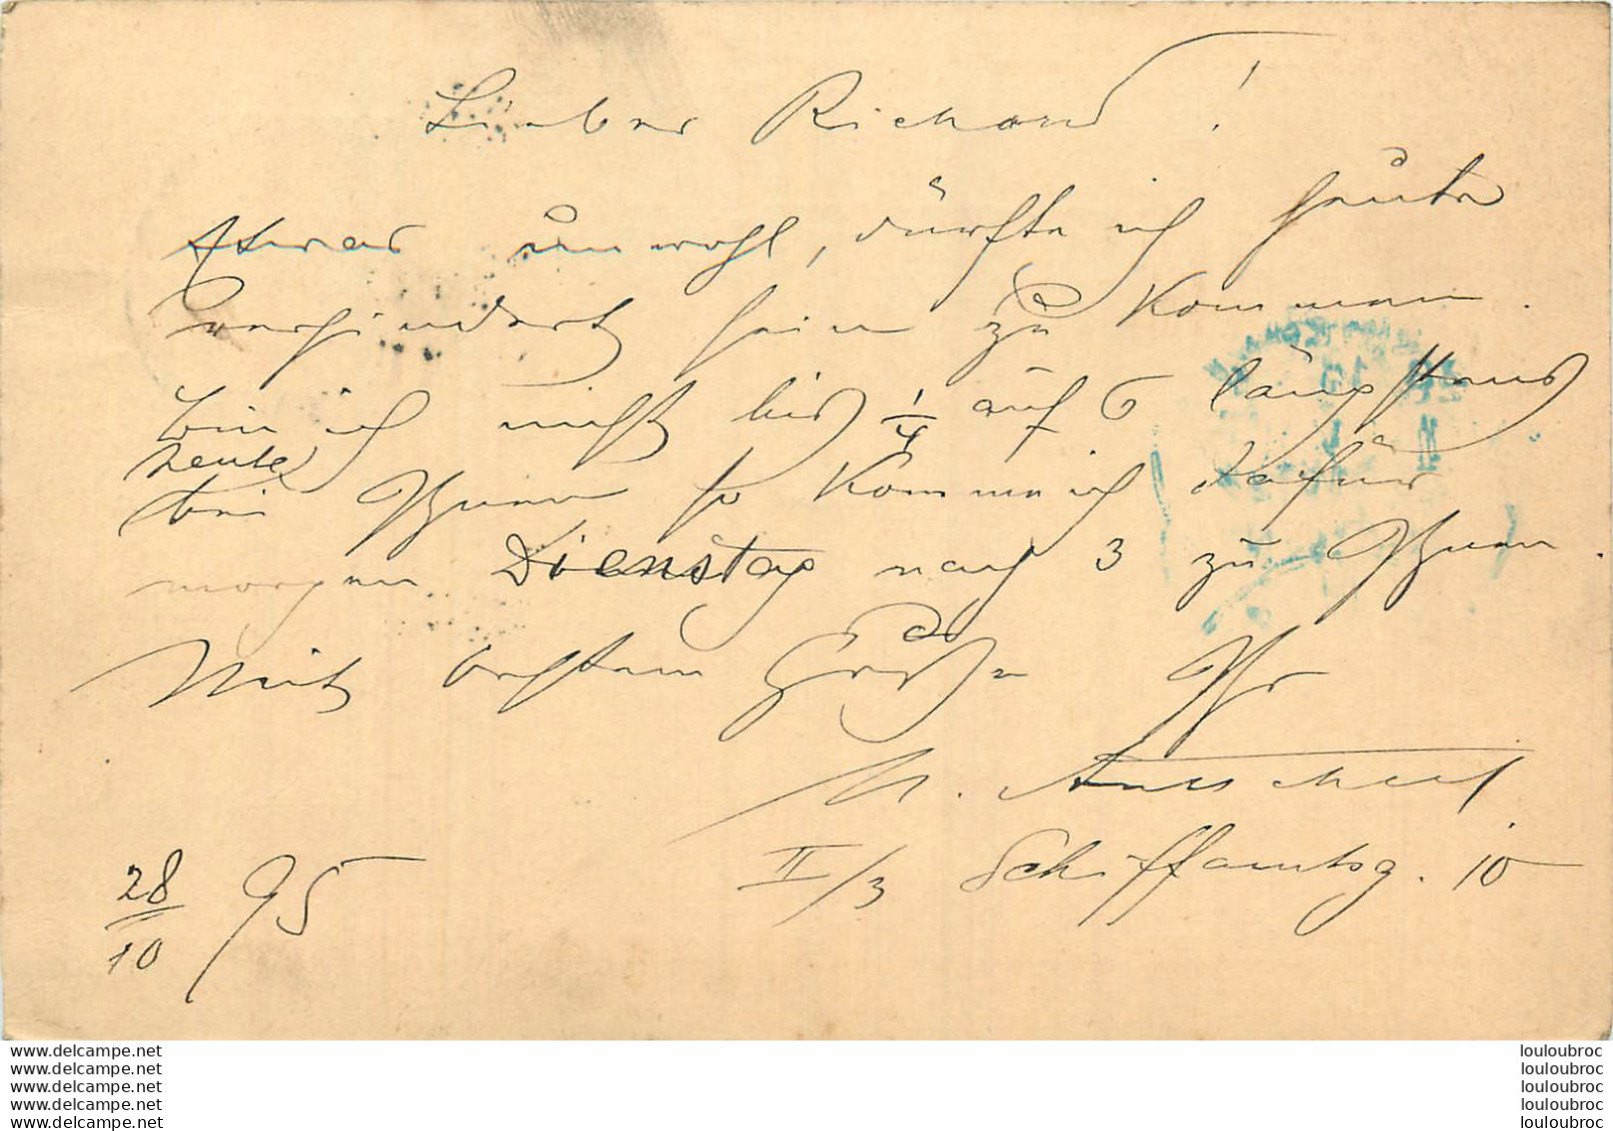 Lieber Richard!
Etwas unwohl, dürfte ich heute
verhindert sein zu kommen.
bin ich nicht bis 1/4 auf 6 längstens
heute
bei Ihnen so komme ich dafür
morgen Dienstag nach 3 zu Ihnen.
Mit besten Grüßen Ihr
II/3 Schiffamtsg. 10
28/10 95
www.delcampe.net
www.delcampe.net
www.delcampe.net
www.delcampe.net
www.delcampe.net
louloubroc
louloubroc
louloubroc
louloubroc
louloubroc